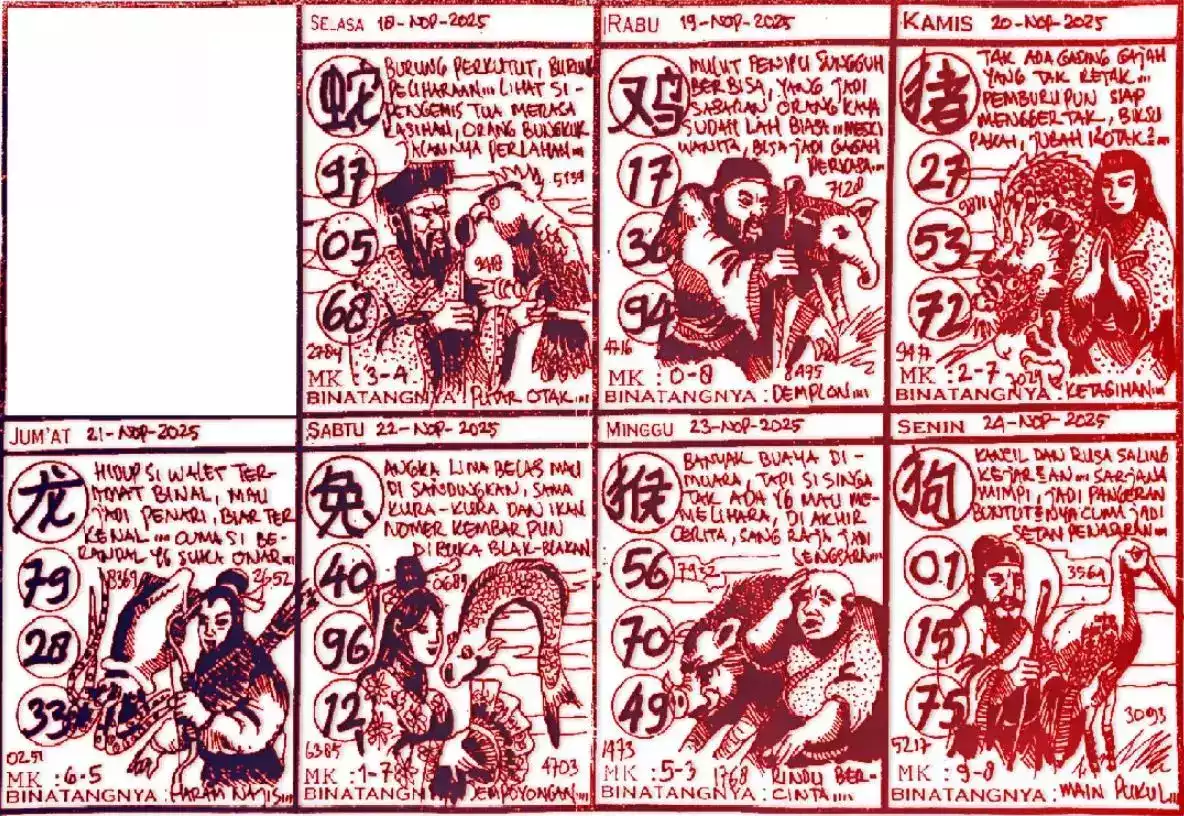 SELASA 18-NOP-2025
蛇
BURUNG PERKUTUT, BURUNG
PELIHARAAN... LIHAT SI-
PENGEMIS TUA MERASA
KASIHAN, ORANG BUNGKUK
JALANNYA PERLAHAN...
97
5139
05
9410
68
2784
MK : 3-4
BINATANGNYA : PUTAR OTAK....
RABU 19-NOP-2025
鸡
MULUT PENIPU SUNGGUH
BERBISA, YANG JADI
SASARAN ORANG KAYA
SUDAH LAH BIASA ... MESKI
WANITA, BISA JADI GAGAH
PERKASA...
17
7128
36
94
4716
8495
MK : 0-8
BINATANGNYA : DEMPLON....
KAMIS 20-NOP-2025
猪
TAK ADA GADING GAJAH
YANG TAK RETAK...
PEMBURU PUN SIAP
MENGGERTAK, BIKSU
PAKAI, JUBAH KOTAK2...
27
53
72
9417
MK : 2-7
BINATANGNYA : KETAGIHAN...
JUM'AT 21-NOP-2025
龙
HIDUP SI WALET TER-
AMAT BINAL, MAU
JADI PENARI, BIAR TER
KENAL ... CUMA SI BE-
RANDAL YG SUKA ONAR...
79
8369
2652
28
33
0251
MK : 6-5
BINATANGNYA : HARAM NAJIS....
SABTU 22-NOP-2025
兔
ANGKA LIMA BELAS MAU
DI SANDINGKAN, SAMA
KURA-KURA DAN IKAN
NOMER KEMBAR PUN
DI BUKA BLAK-BLAKAN
40
0689
96
12
6385
4703
MK : 1-7
BINATANGNYA : SEMPOYONGAN....
MINGGU 23-NOP-2025
猴
BANYAK BUAYA DI-
MUARA, TAPI SI SINGA
TAK ADA YG MAU ME-
MELIHARA, DI AKHIR
CERITA, SANG RAJA JADI
SENGSARA...
56
7952
70
49
1473
MK : 5-3
1768
BINATANGNYA : RINDU BER-
CINTA....
SENIN 24-NOP-2025
狗
KANCIL DAN RUSA SALING
KEJAR2AN ... SARJANA
MIMPI, JADI PANGERAN
BUNTUT2NYA CUMA JADI
SETAN PENASARAN...
01
3564
15
75
3093
5217
MK : 9-8
BINATANGNYA : MAIN PUKUL...